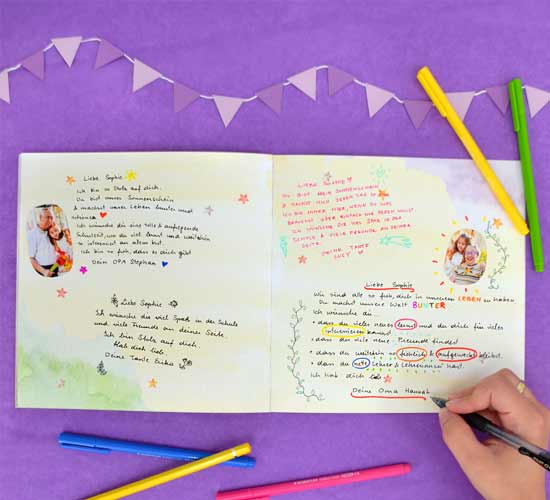 Liebe Sophie
Ich bin so Stolz auf dich.
Du bist unser Sonnenschein
& machst unser Leben bunter und
Ich wünsche dir eine tolle & aufregende
Schulzeit, wo du viel lernst und weiterhin
so interessiert an allem bist.
Ich bin so froh, dass es dich gibt
Dein OPA Stephan
Liebe Sophie
Ich wünsche dir viel Spaß in der Schule
und viele Freunde an deiner Seite.
Ich bin Stolz auf dich.
Hab dich lieb
Deine Tante Erika
LIEBE SOPHIE
DU BIST MEIN SONNENSCHEIN
& MACHST MIR JEDEN TAG SO
ICH BIN IMMER HIER, WENN DU WAS
BRAUCHST ODER EINFACH NUR REDEN WILLST
ICH WÜNSCHE DIR VIEL SPAß IN DER
SCHULE & VIELE FREUNDE AN DEINER
SEITE.
DEINE TANTE
Liebe Sophie
Wir sind alle so froh, dich in unserem LEBEN zu haben
Du machst unsere Welt BUNTER
Ich wünsche dir
• dass du vieles neues lernst und du dich für vieles
interessieren kannst.
• dass du viele neue Freunde findest
• dass du weiterhin so fröhlich & aufgeweckt bleibst.
• dass du gute Lehrer & Lehrerinnen hast.
Ich hab dich lieb
Deine Oma Hannah